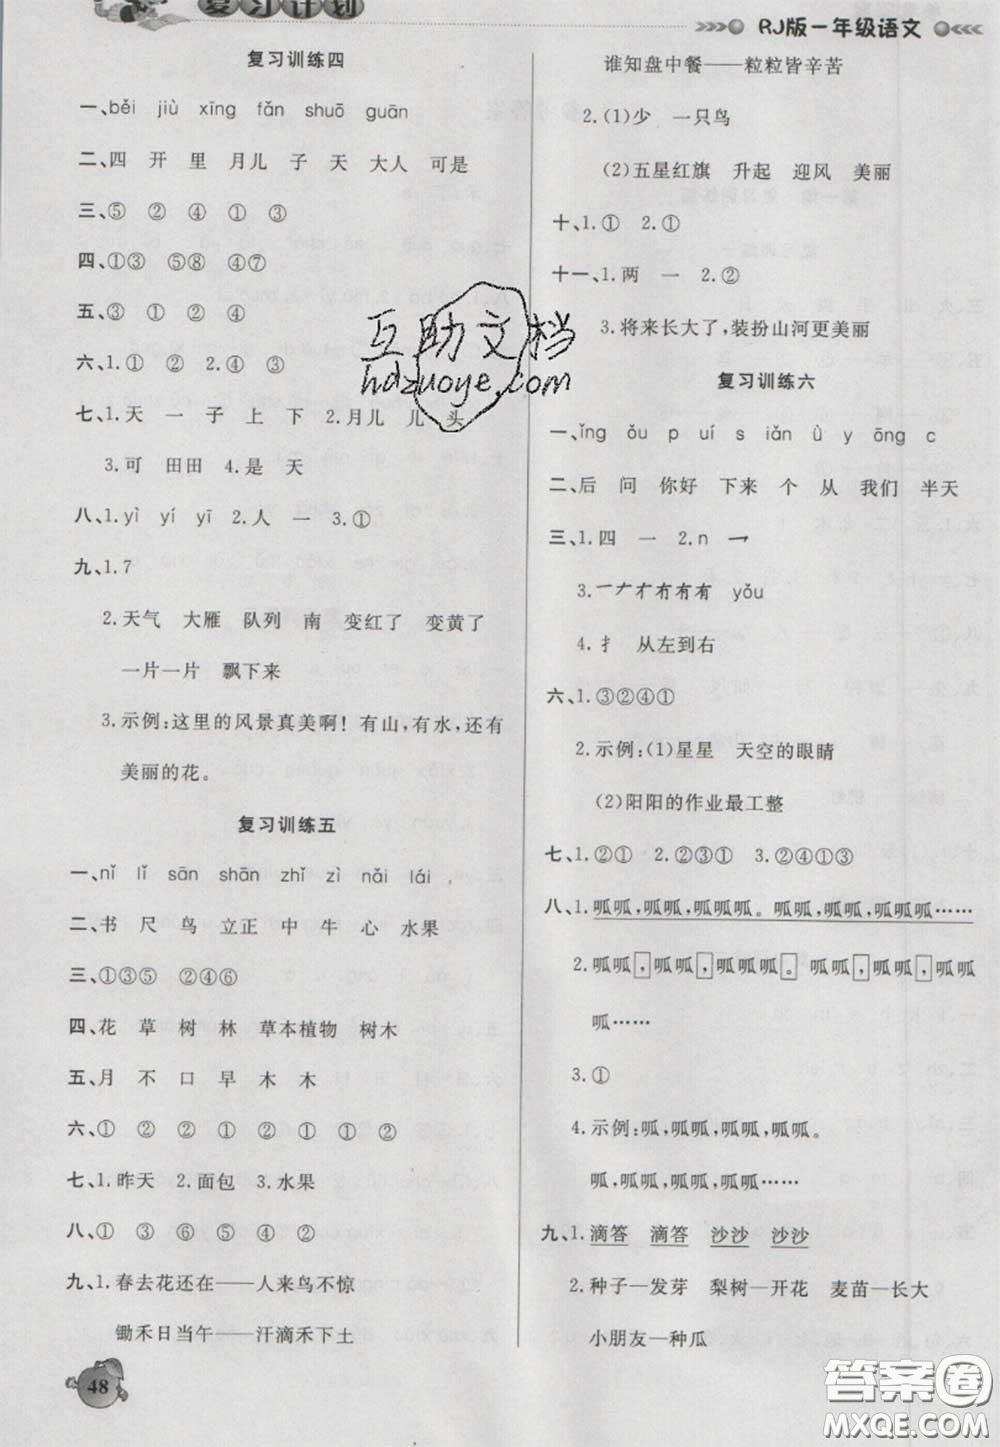 复习计划
RJ版一年级语文
复习训练四
一、běi jiù xīng fǎn shuō guān
二、四 开 里 月儿 子 天 大人 可是
三、⑤ ② ④ ① ③
四、①③ ⑤⑧ ②④ ⑥⑦
五、③ ① ② ④
六、1.① ③ ② 2.④ ③
七、1.天 一 子 上 下 2.月儿 儿 头
3.可 田田 4.是 天
八、1.yì yí yī 2.人 一 3.①
九、1.7
2.天气 大雁 队列 南 变红了 变黄了
一片一片 飘下来
3.示例:这里的风景真美啊! 有山,有水,还有
美丽的花。
复习训练五
一、nǐ lǐ sān shān zhǐ zì nǎi lái
二、书 尺 鸟 立正 中 牛 心 水果
三、①③⑤ ②④⑥
四、花 草 树 林 草本植物 树木
五、月 不 口 早 木 木
六、① ② ② ① ② ① ① ②
七、1.昨天 2.面包 3.水果
八、① ③ ⑥ ⑤ ④ ②
九、1.春去花还在——人来鸟不惊
锄禾日当午——汗滴禾下土
48
谁知盘中餐——粒粒皆辛苦
2.(1)少 一只鸟
(2)五星红旗 升起 迎风 美丽
十、1.① 2.①
十一、1.两 一 2.②
3.将来长大了,装扮山河更美丽
复习训练六
一、ǐng ǒu p uí s iǎn ù y ōng c
二、后 问 你好 下来 个 从 我们 半天
三、1.四 一 2.n ㇀
3.一ナオ冇有有 yǒu
4.扌 从左到右
六、1.③②④①
2.示例:(1)星星 天空的眼睛
(2)阳阳的作业最工整
七、1.②① 2.②③① 3.①②③
八、1.呱呱,呱呱,呱呱呱。呱呱,呱呱,呱呱呱……
2.呱呱,呱呱,呱呱呱。 呱呱,呱呱,呱呱
呱……
3.①
4.示例:呱,呱呱,呱呱,呱呱。
呱,呱呱,呱呱,呱呱……
九、1.滴答 滴答 沙沙 沙沙
2.种子—发芽 梨树—开花 麦苗—长大
小朋友—种瓜
互助文档
hdzuoye.com
答案圈
MXQE.COM